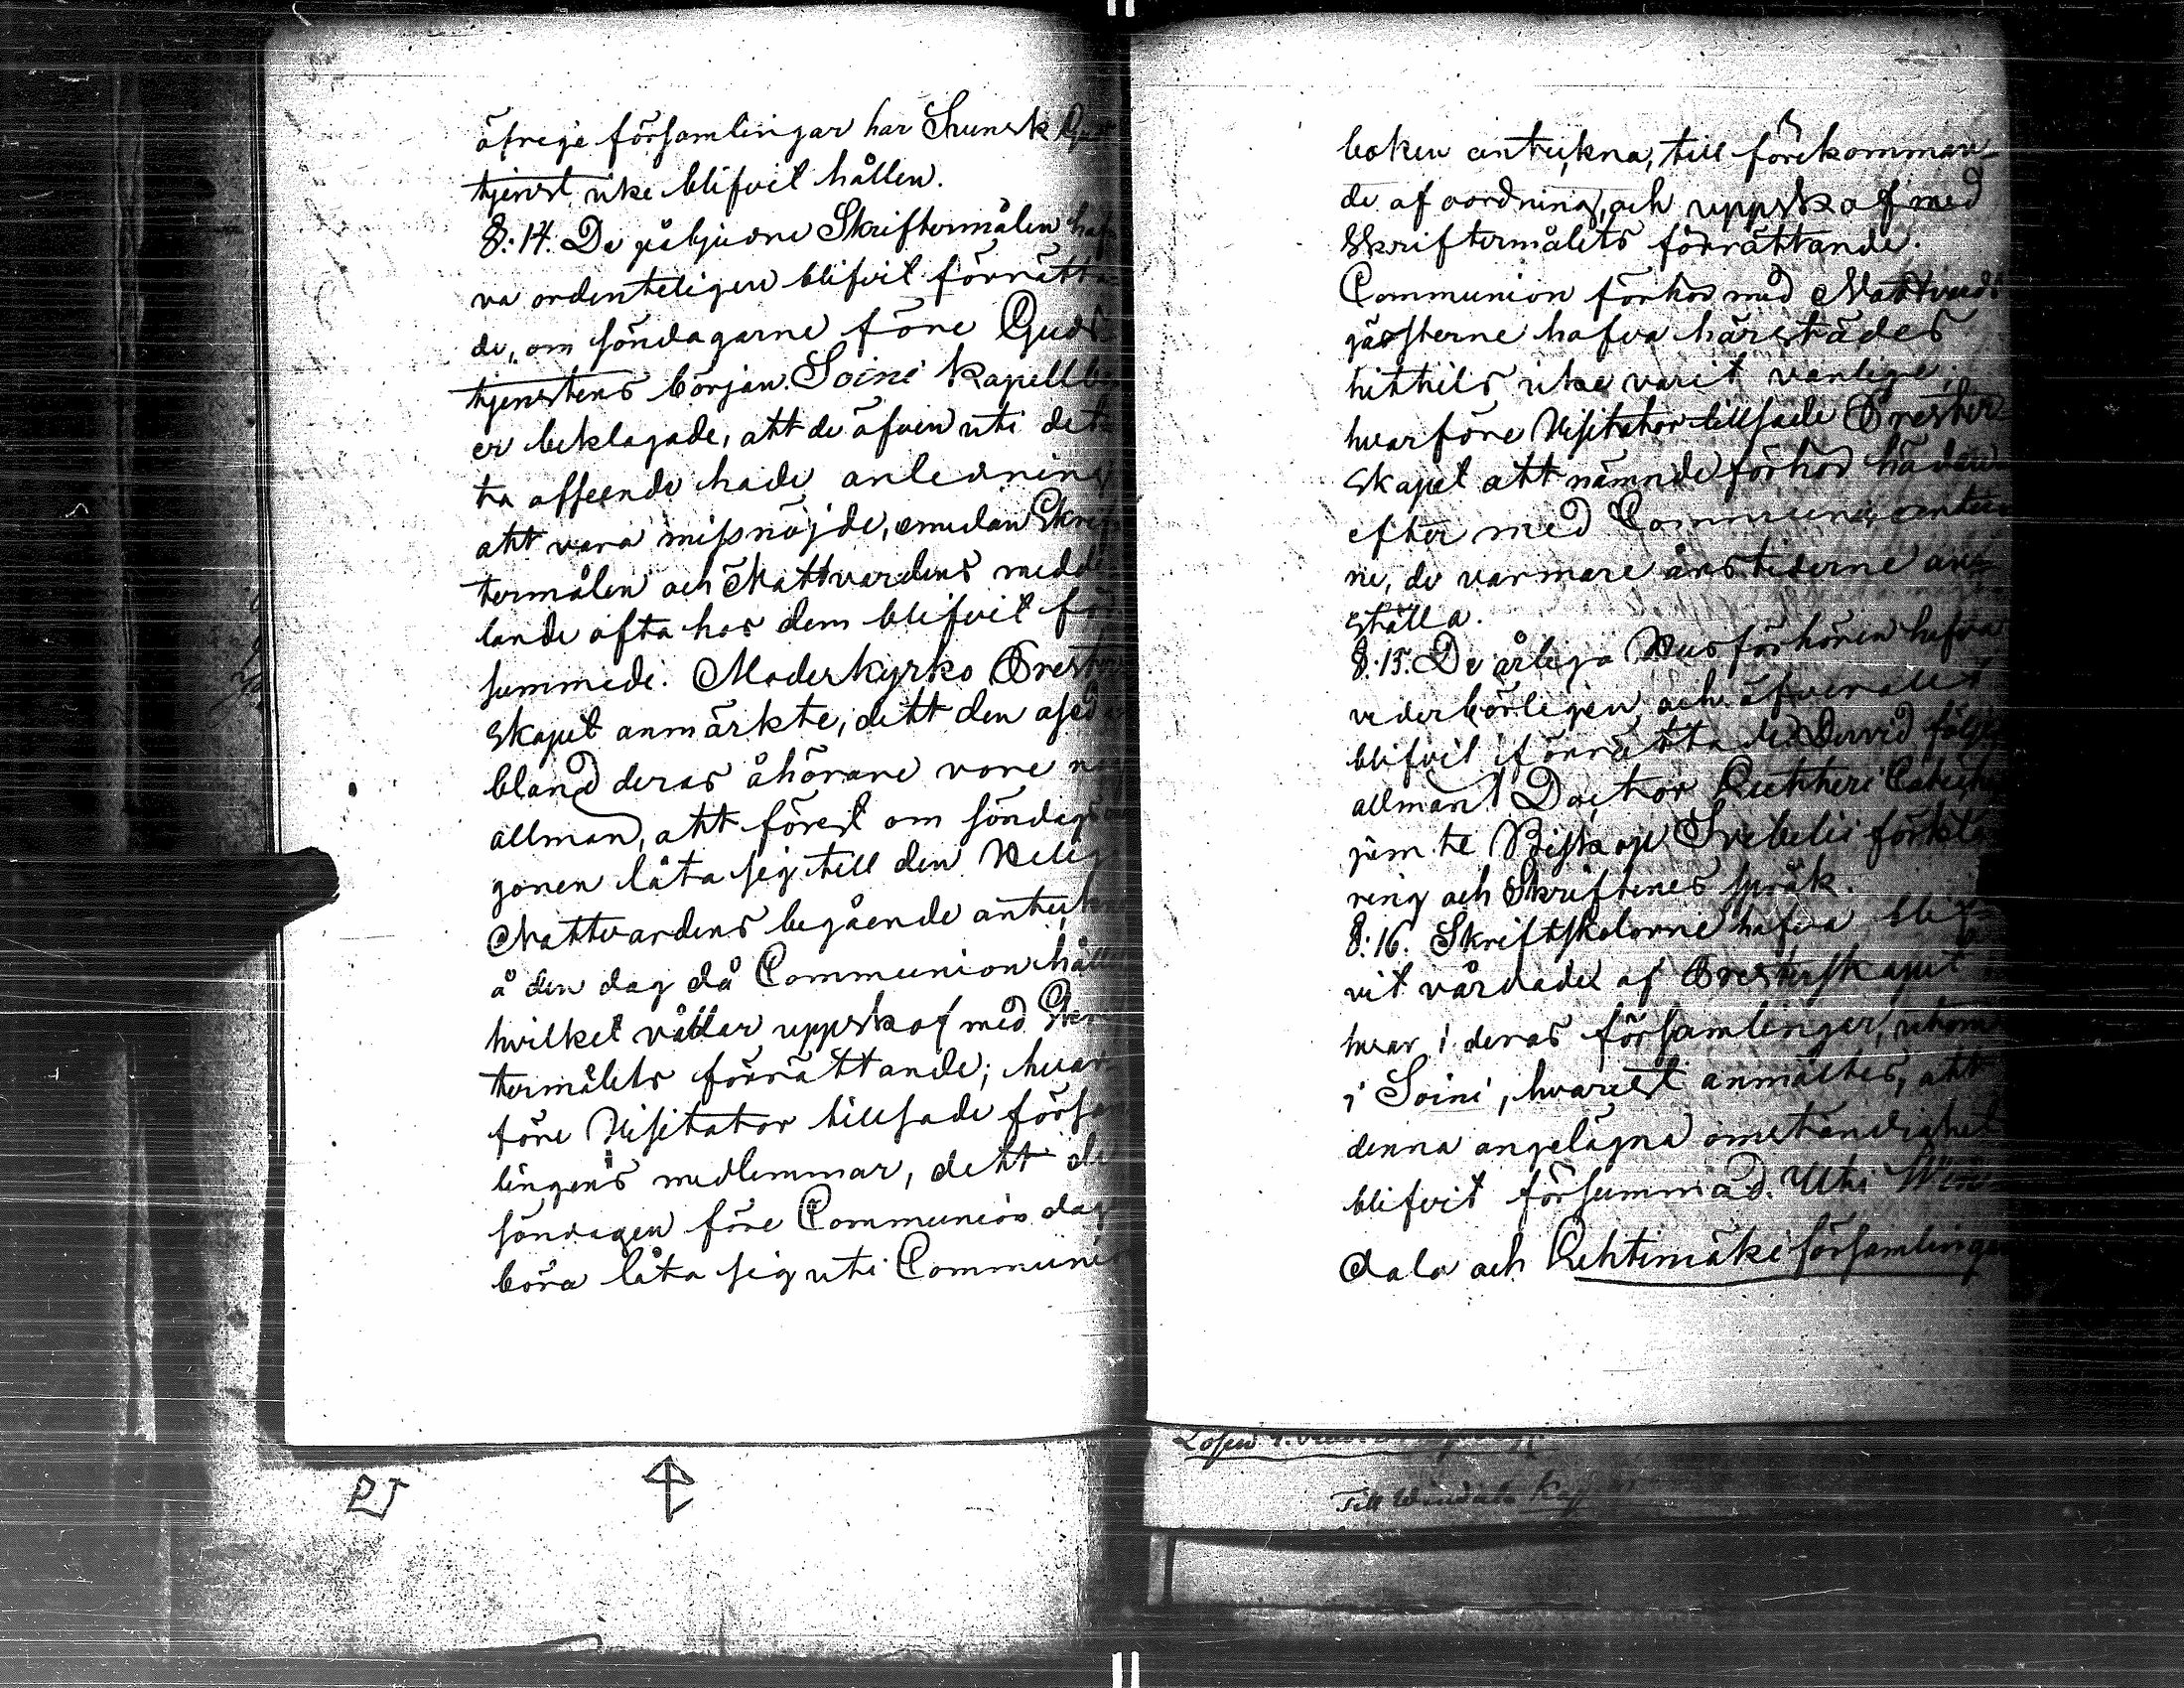 öfrige församlingar har Svensk Gud
tjenst icke blifvit hållen.
§: 14. De påbjudne Skriftermålen haf
va ordenteligen blifvit förrätta-
de, om söndagarne före Guds
tjenstens början. Soini Kapellbo
er beklagade, att de äfven uti det-
ta afseende hade anledning
att vara missnöjde, emedan Skrif
termålen och Nattvardens medde
lande ofta hos dem blifvit för
summede. Moderkyrko Prester
skapet anmärkte, dett den osed
bland deras åhörare vore nog
allmän, att först om söndags
gonen låta sig till den Helig
Nattvardens begående anteckn
å den dag då Communion håll
hvilket vållar uppskof med Skrif
termålets förrättande; hvar-
före Visitator tillsade försam
lingens medlemmar, dett de
söndagen före Communions dag
böra låta sig uti Communi
boken anteckna, till förekomman-
de af oordning, och uppskof med
Skriftermålets förrättande.
Communion förhör med Nattvards
gästerne hafva härstädes
hittils icke varit vanlige;
hvarföre Visitator tillsade Prester-
skapet att nämnde förhör hädan
efter med Communicanter
ne, de varmare årstiderne an-
ställa.
§: 15. De årliga Husförhören hafva
vederbörligen och öfverallt
blifvit förrättade. Dervid följes
allmänt Doctor Lutheri Catech
jemte Biskop Svebelii förkla
ring och Skriftenes språk.
§: 16. Skriftskolorne hafva blif-
vit vårdade af Presterskapet
hvar i deras församlingar, utom
i Soini, hvarest anmältes, att
denna angelägna omständighet
blifvit försummad. Uti Win-
dala och Lehtimäki församlingar
Till Windala Kap
PJ